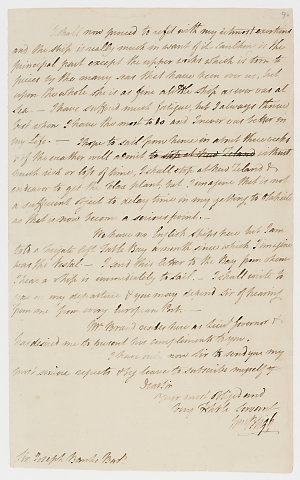 I shall now proceed to refit with my utmost exertions
and the Ship is really much in want of it. Caulking is the
principal part except the upper works which is torn to
pieces by the many seas that have been over us, but
upon the whole she is as fine a little Ship as ever was at
sea. — I have suffered much fatigue, but I always thrive
best when I have the most to do and I never was better in
my life. — I hope to sail from hence in about three weeks
& if the weather will admit to stop at Island without
much risk or loss of time, I shall stop at Island &
endeavor to get the plant, but I imagine that is not
a sufficient object to delay time in my getting to Otaheite
as that is now become a serious point. —
We have no English Ships here but I am
told a frigate left Table Bay a month since which I imagine
was the Vestal — I send this letter to the Bay from whence
I hear a Ship is immediately to sail. — I shall write to
you on my departure & you may depend Sir of hearing
from me from every European Port. —
Mr. Brand resides here as Lieut Governor &
has desired me to present his compliments to you.
I have only now Sir to send you my
most sincere respects & beg leave to subscribe myself
Dear Sir
your most obliged and
Very Hble Servant
Wm Bligh
Sir Joseph Banks Bart